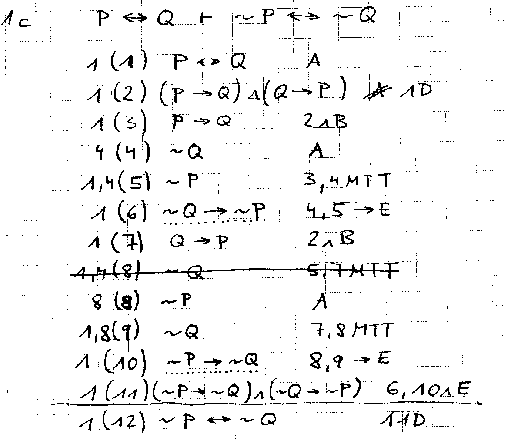 1c P ↔ Q ⊢ ~P ↔ ~Q
1 (1) P ↔ Q A
1 (2) (P → Q) ∧ (Q → P) 1D
1 (3) P → Q 2∧B
4 (4) ~Q A
1,4 (5) ~P 3,4 MTT
1 (6) ~Q → ~P 4,5 → E
1 (7) Q → P 2∧B
1,4 (8) ~Q 5,7 MTT
8 (8) ~P A
1,8 (9) ~Q 7,8 MTT
1 (10) ~P → ~Q 8,9 → E
1 (11) (~P → ~Q) ∧ (~Q → ~P) 6,10 ∧E
1 (12) ~P ↔ ~Q 11D